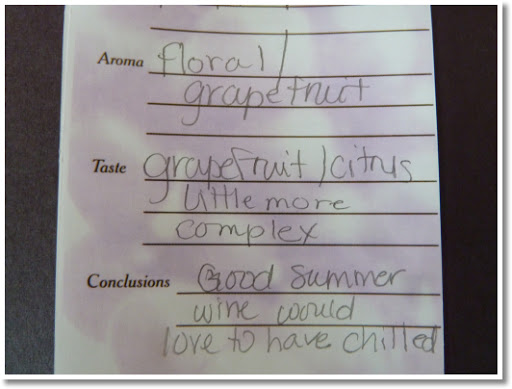 Aroma floral /
grapefruit
Taste grapefruit / citrus
little more
complex
Conclusions Good summer
wine would
love to have chilled